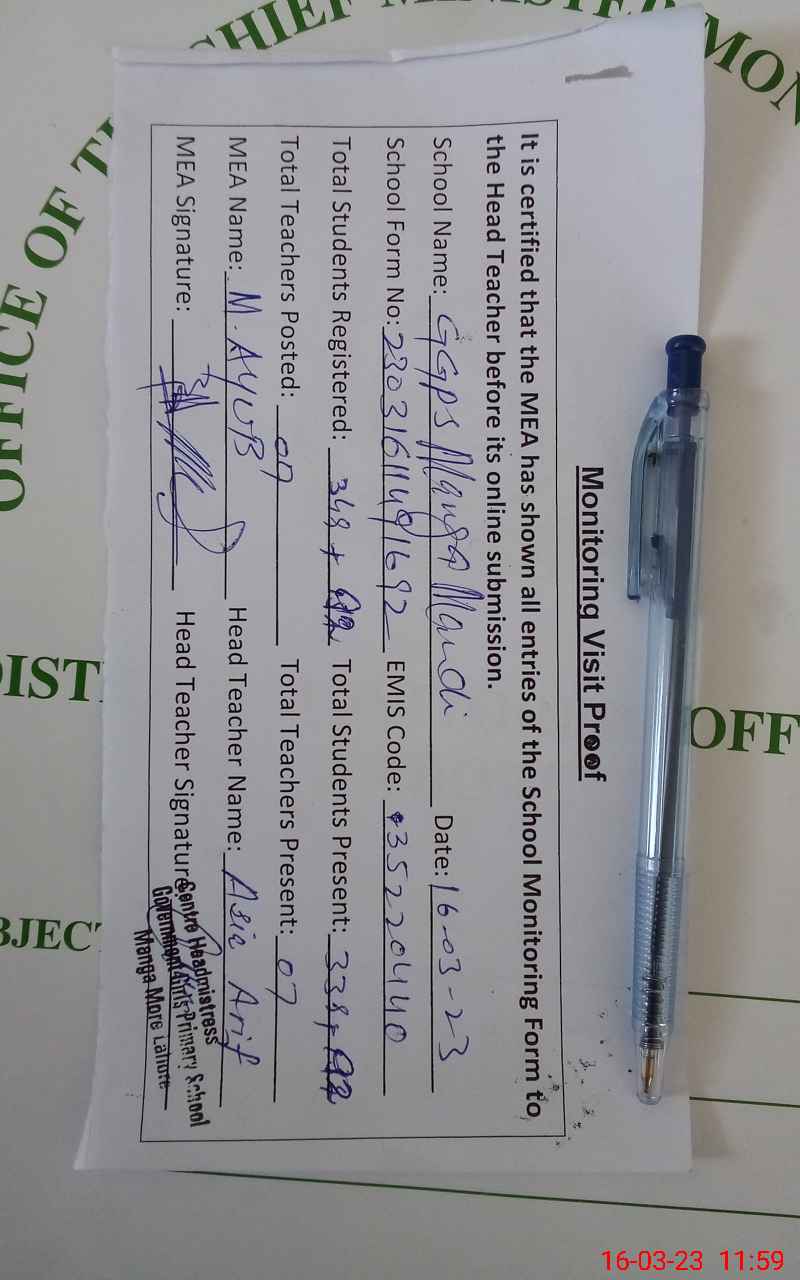 CHIEF MINISTER MON
OFFICE OF T
DIST
OFF
BJECT
Monitoring Visit Proof
It is certified that the MEA has shown all entries of the School Monitoring Form to
the Head Teacher before its online submission.
School Name: GGPS Manga Mandi Date: 16-03-23
School Form No: EMIS Code: 35220440
Total Students Registered: 348 + Total Students Present: 338 +
Total Teachers Posted: 07 Total Teachers Present: 07
MEA Name: M. AYUB Head Teacher Name: Asia Arif
MEA Signature: Head Teacher Signature
Centre Headmistress
Government Girls Primary School
Manga More Lahore
16-03-23 11:59